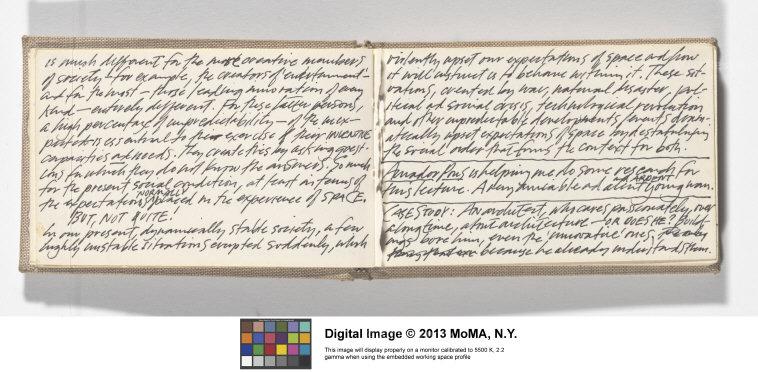 is much different for the more creative members
of society—for example, the creators of entertainment—
and for the most—those leading innovators of every
kind—entirely different. For these latter persons,
a high percentage of unpredictability—of the unex-
pected is essential to their exercise of their INVENTIVE
capacities and needs. They create this by asking quest-
ions for which they do not know the answers. So much
for the present social condition, at least in terms of
NORMALLY
the expectations placed in the experience of SPACE.
BUT, NOT QUITE!
In our present, dynamically stable society, a few
highly unstable situations erupted suddenly, which
violently upset our expectations of space and how
it will instruct us to behave within it. These sit-
uations, created by war, natural disaster, pol-
itical and social crisis, technological revolution
and other unpredictable developments/events dram-
atically upset expectations of space by destabilizing
the social order that forms the context for both.
is helping me do some research for
AND ARDENT
this lecture. A very amicable and alert young man.
CASE STUDY: An architect, who cares passionately, over
a long time, about architecture—OR DOES HE? Build-
ings bore him, even the 'innovative' ones,
because he already understands them.
Digital Image © 2013 MoMA, N.Y.
This image will display properly on a monitor calibrated to 5500 K, 2.2
gamma when using the embedded working space profile